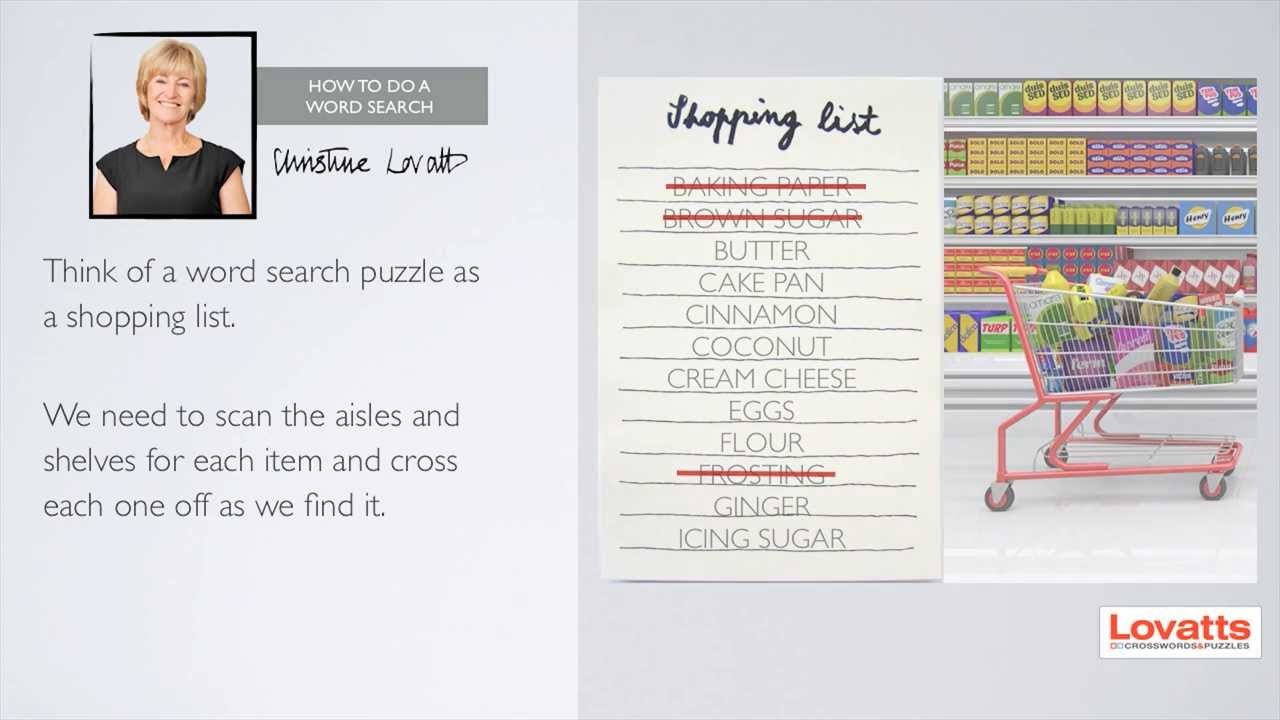 HOW TO DO A
WORD SEARCH
Christine Lovatt
Think of a word search puzzle as
a shopping list.
We need to scan the aisles and
shelves for each item and cross
each one off as we find it.
Shopping list
BAKING PAPER
BROWN SUGAR
BUTTER
CAKE PAN
CINNAMON
COCONUT
CREAM CHEESE
EGGS
FLOUR
FROSTING
GINGER
ICING SUGAR
Henry Henry
TURP
Lovatts
CROSSWORDS&PUZZLES